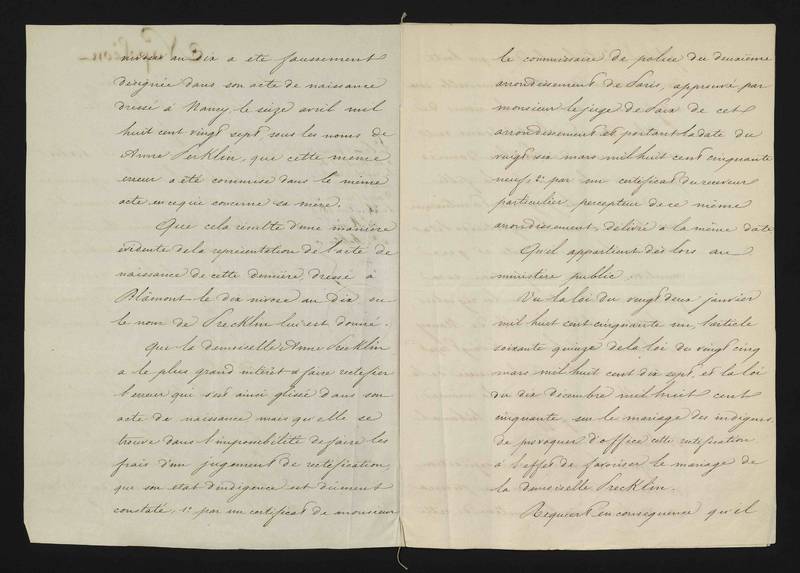 nivose an dix a été faussement
désignée dans son acte de naissance
dressé à Nancy, le seize avril mil
huit cent vingt sept, sous les noms de
Anne Perklin, que cette même
erreur a été commise dans le même
acte, en ce qui concerne sa mère.
Que cela résulte d'une manière
évidente de la représentation de l'acte de
naissance de cette dernière, dressé à
Blâmont le dix nivose an dix, ou
le nom de Precklin lui est donné.
Que la demoiselle Anne Precklin
a le plus grand intérêt à faire rectifier
l'erreur qui s'est ainsi glissée dans son
acte de naissance mais qu'elle se
trouve dans l'impossibilité de faire les
frais d'un jugement de rectification,
que son état d'indigence est dûment
constaté, 1º par un certificat de monsieur
le commissaire de police du deuxième
arrondissement de Paris, approuvé par
monsieur le juge de Paix de cet
arrondissement et portant la date du
vingt six mars mil huit cent cinquante
neuf, 2º par un certificat du receveur
particulier, percepteur de ce même
arrondissement, délivré à la même date
Qu'il appartient dès lors au
ministère public,
Vu la loi du vingt deux janvier
mil huit cent cinquante un, l'article
soixante quinze de la loi du vingt cinq
mars mil huit cent dix sept, et la loi
du dix décembre mil huit cent
cinquante, sur le mariage des indigens,
de provoquer d'office cette rectification
à l'effet de favoriser le mariage de
la demoiselle Precklin.
Requiert en conséquence qu'il